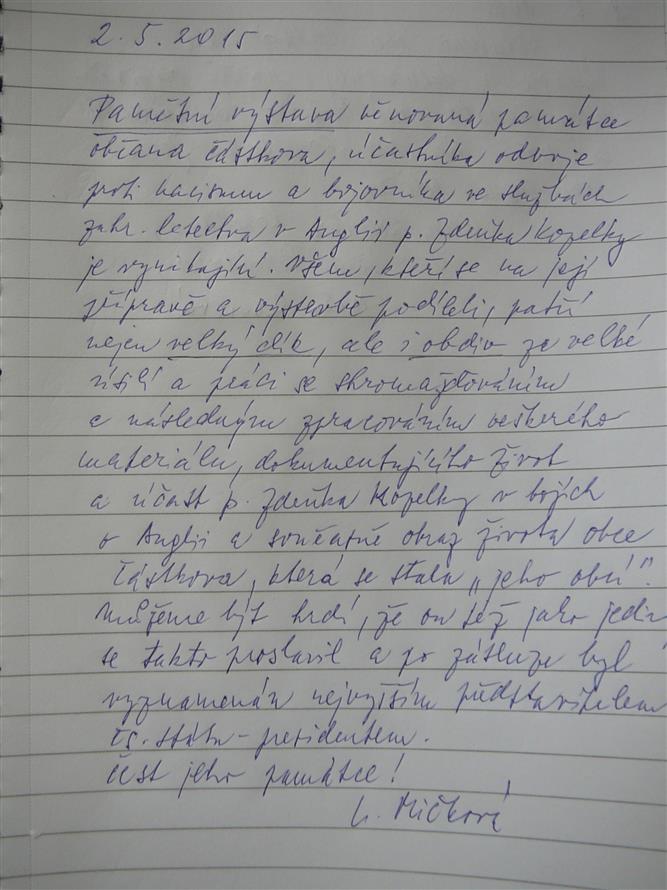 2. 5. 2015
Pamětní výstava věnovaná památce
občana Částkova, účastníka odboje
proti nacismu a bojovníka ve službách
zahr. letectva v Anglii p. Zdeňka Kozelky
je vynikající. Všem, kteří se na její
přípravě a výstavbě podíleli, patří
nejen velký dík, ale i obdiv za velké
úsilí a práci se shromažďováním
a následným zpracováním veškerého
materiálu, dokumentujícího život
a účast p. Zdeňka Kozelky v bojích
o Anglii a současně obraz života obce
Částkova, která se stala „jeho obcí".
Můžeme být hrdí, že on též jako jedin
se takto proslavil a po zásluze byl
vyznamenán nejvyšším představitelem
čs. státu - presidentem.
Čest jeho památce!
Mičková